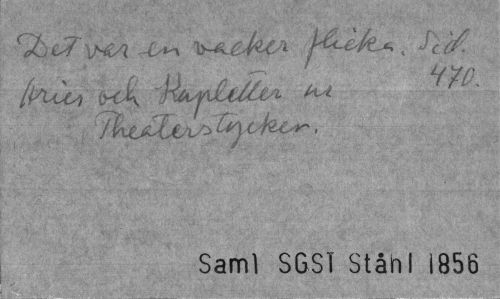 Det var en vacker flicka. Sid.
470.
Aries och Kupletter ur
Theaterstycken.
Saml SGST Ståhl 1856